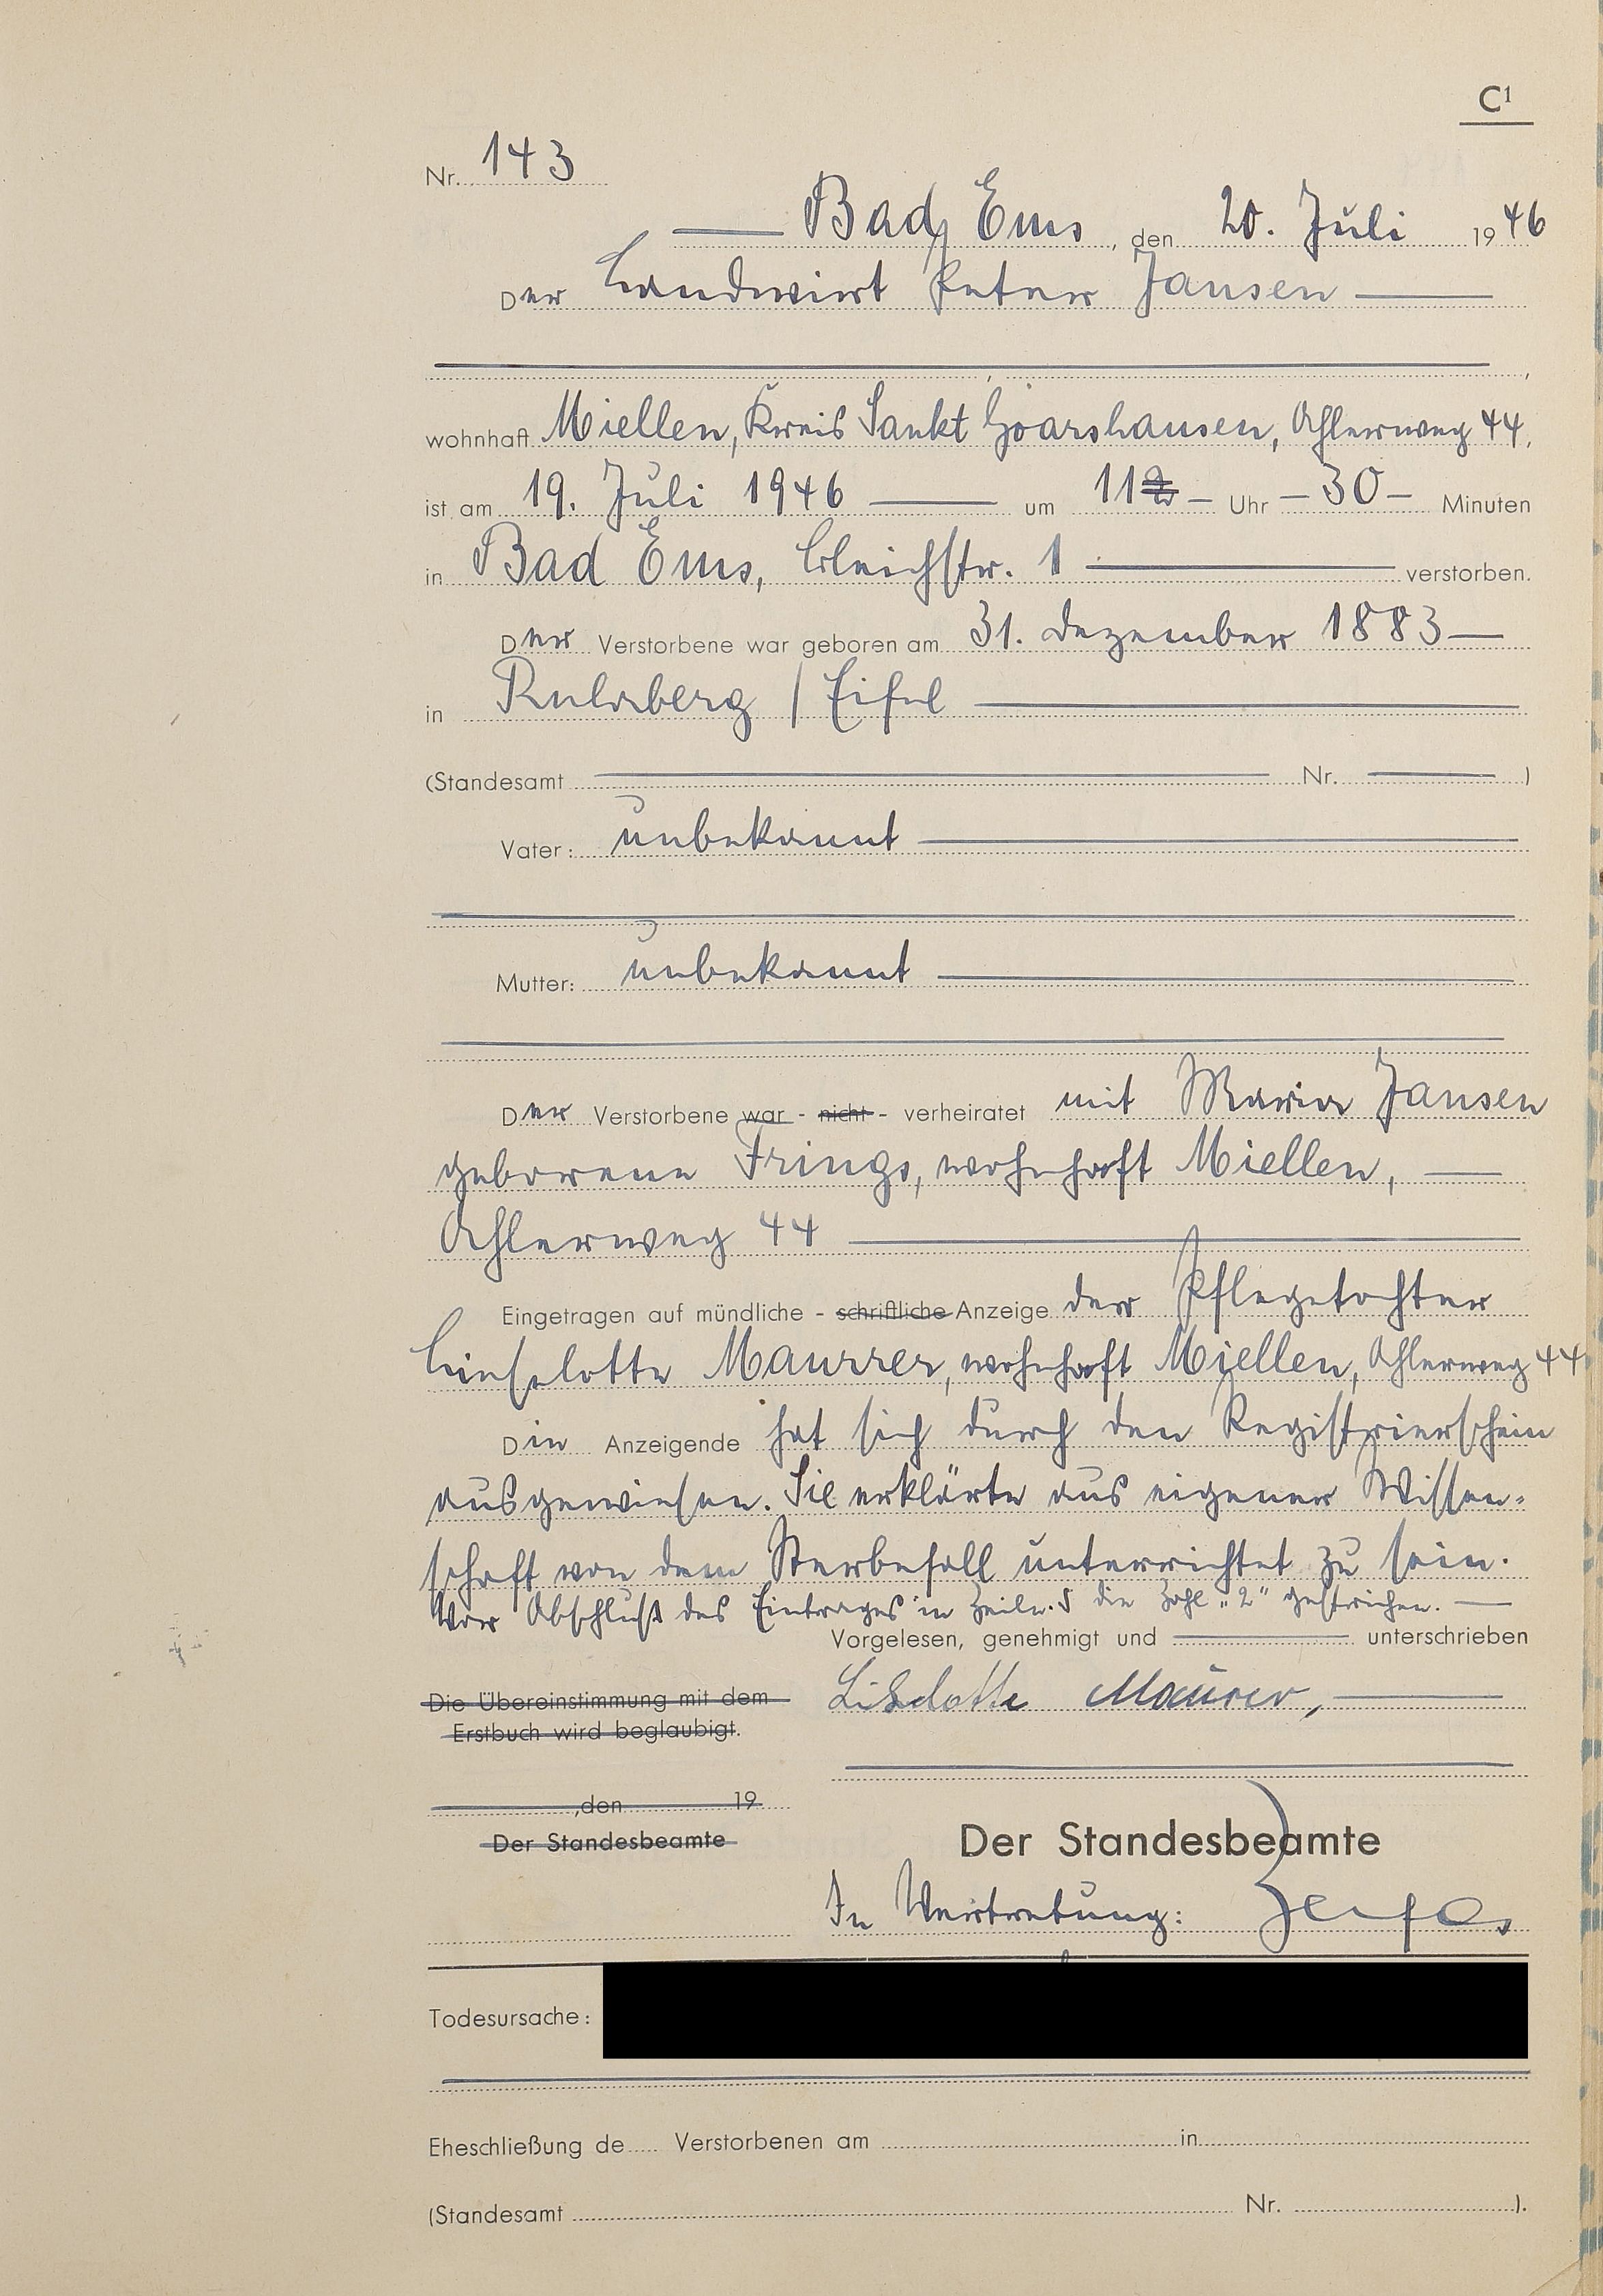 C¹
Nr. 143
Bad Ems, den 20. Juli 1946
Der Landwirt Peter Jansen
wohnhaft Miellen, Kreis Sankt Goarshausen, Ahlerweg 44,
ist am 19. Juli 1946 um 112 Uhr 30 Minuten
in Bad Ems, Bleichstr. 1 verstorben.
Der Verstorbene war geboren am 31. Dezember 1883
in Ruhrberg / Eifel
(Standesamt Nr. )
Vater: unbekannt
Mutter: unbekannt
Der Verstorbene war - nicht - verheiratet mit Maria Jansen
geborene Frings, wohnhaft Miellen,
Ahlerweg 44
Eingetragen auf mündliche - schriftliche Anzeige der Pflegetochter
Lieselotte Maurrer, wohnhaft Miellen, Ahlerweg 44
Die Anzeigende hat sich durch den Registrierschein
ausgewiesen. Sie erklärte aus eigener Wissen-
schaft von dem Sterbefall unterrichtet zu sein.
Vor Abschluß des Eintrages in Zeile 5 die Zahl „2" gestrichen.
Vorgelesen, genehmigt und unterschrieben
Die Übereinstimmung mit dem
Erstbuch wird beglaubigt.
Liselotte Maurer,
, den 19
Der Standesbeamte
Der Standesbeamte
In Vertretung:
Todesursache:
Eheschließung de Verstorbenen am in
(Standesamt Nr. ).